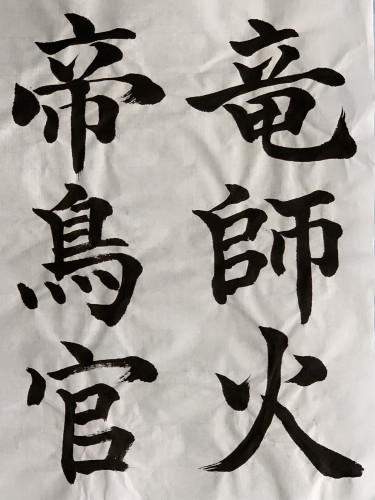 竜師火
帝鳥官